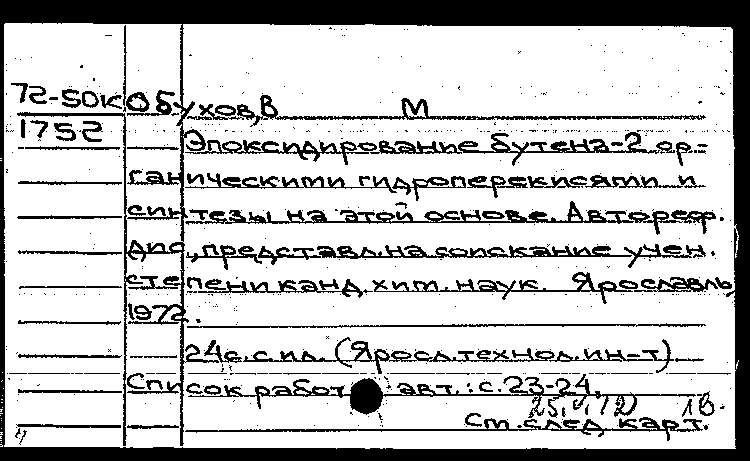 72-50к Обухов, В М
1752
Эпоксидирование бутена-2 ор-
ганическими гидроперекисями и
синтезы на этой основе. Автореф.
дис., представл. на соискание учен.
степени канд. хим. наук. Ярославль,
1972.
24с. с ил. (Яросл. технол. ин-т)
Список работ авт.: с. 23-24.
1в.
См. след. карт.